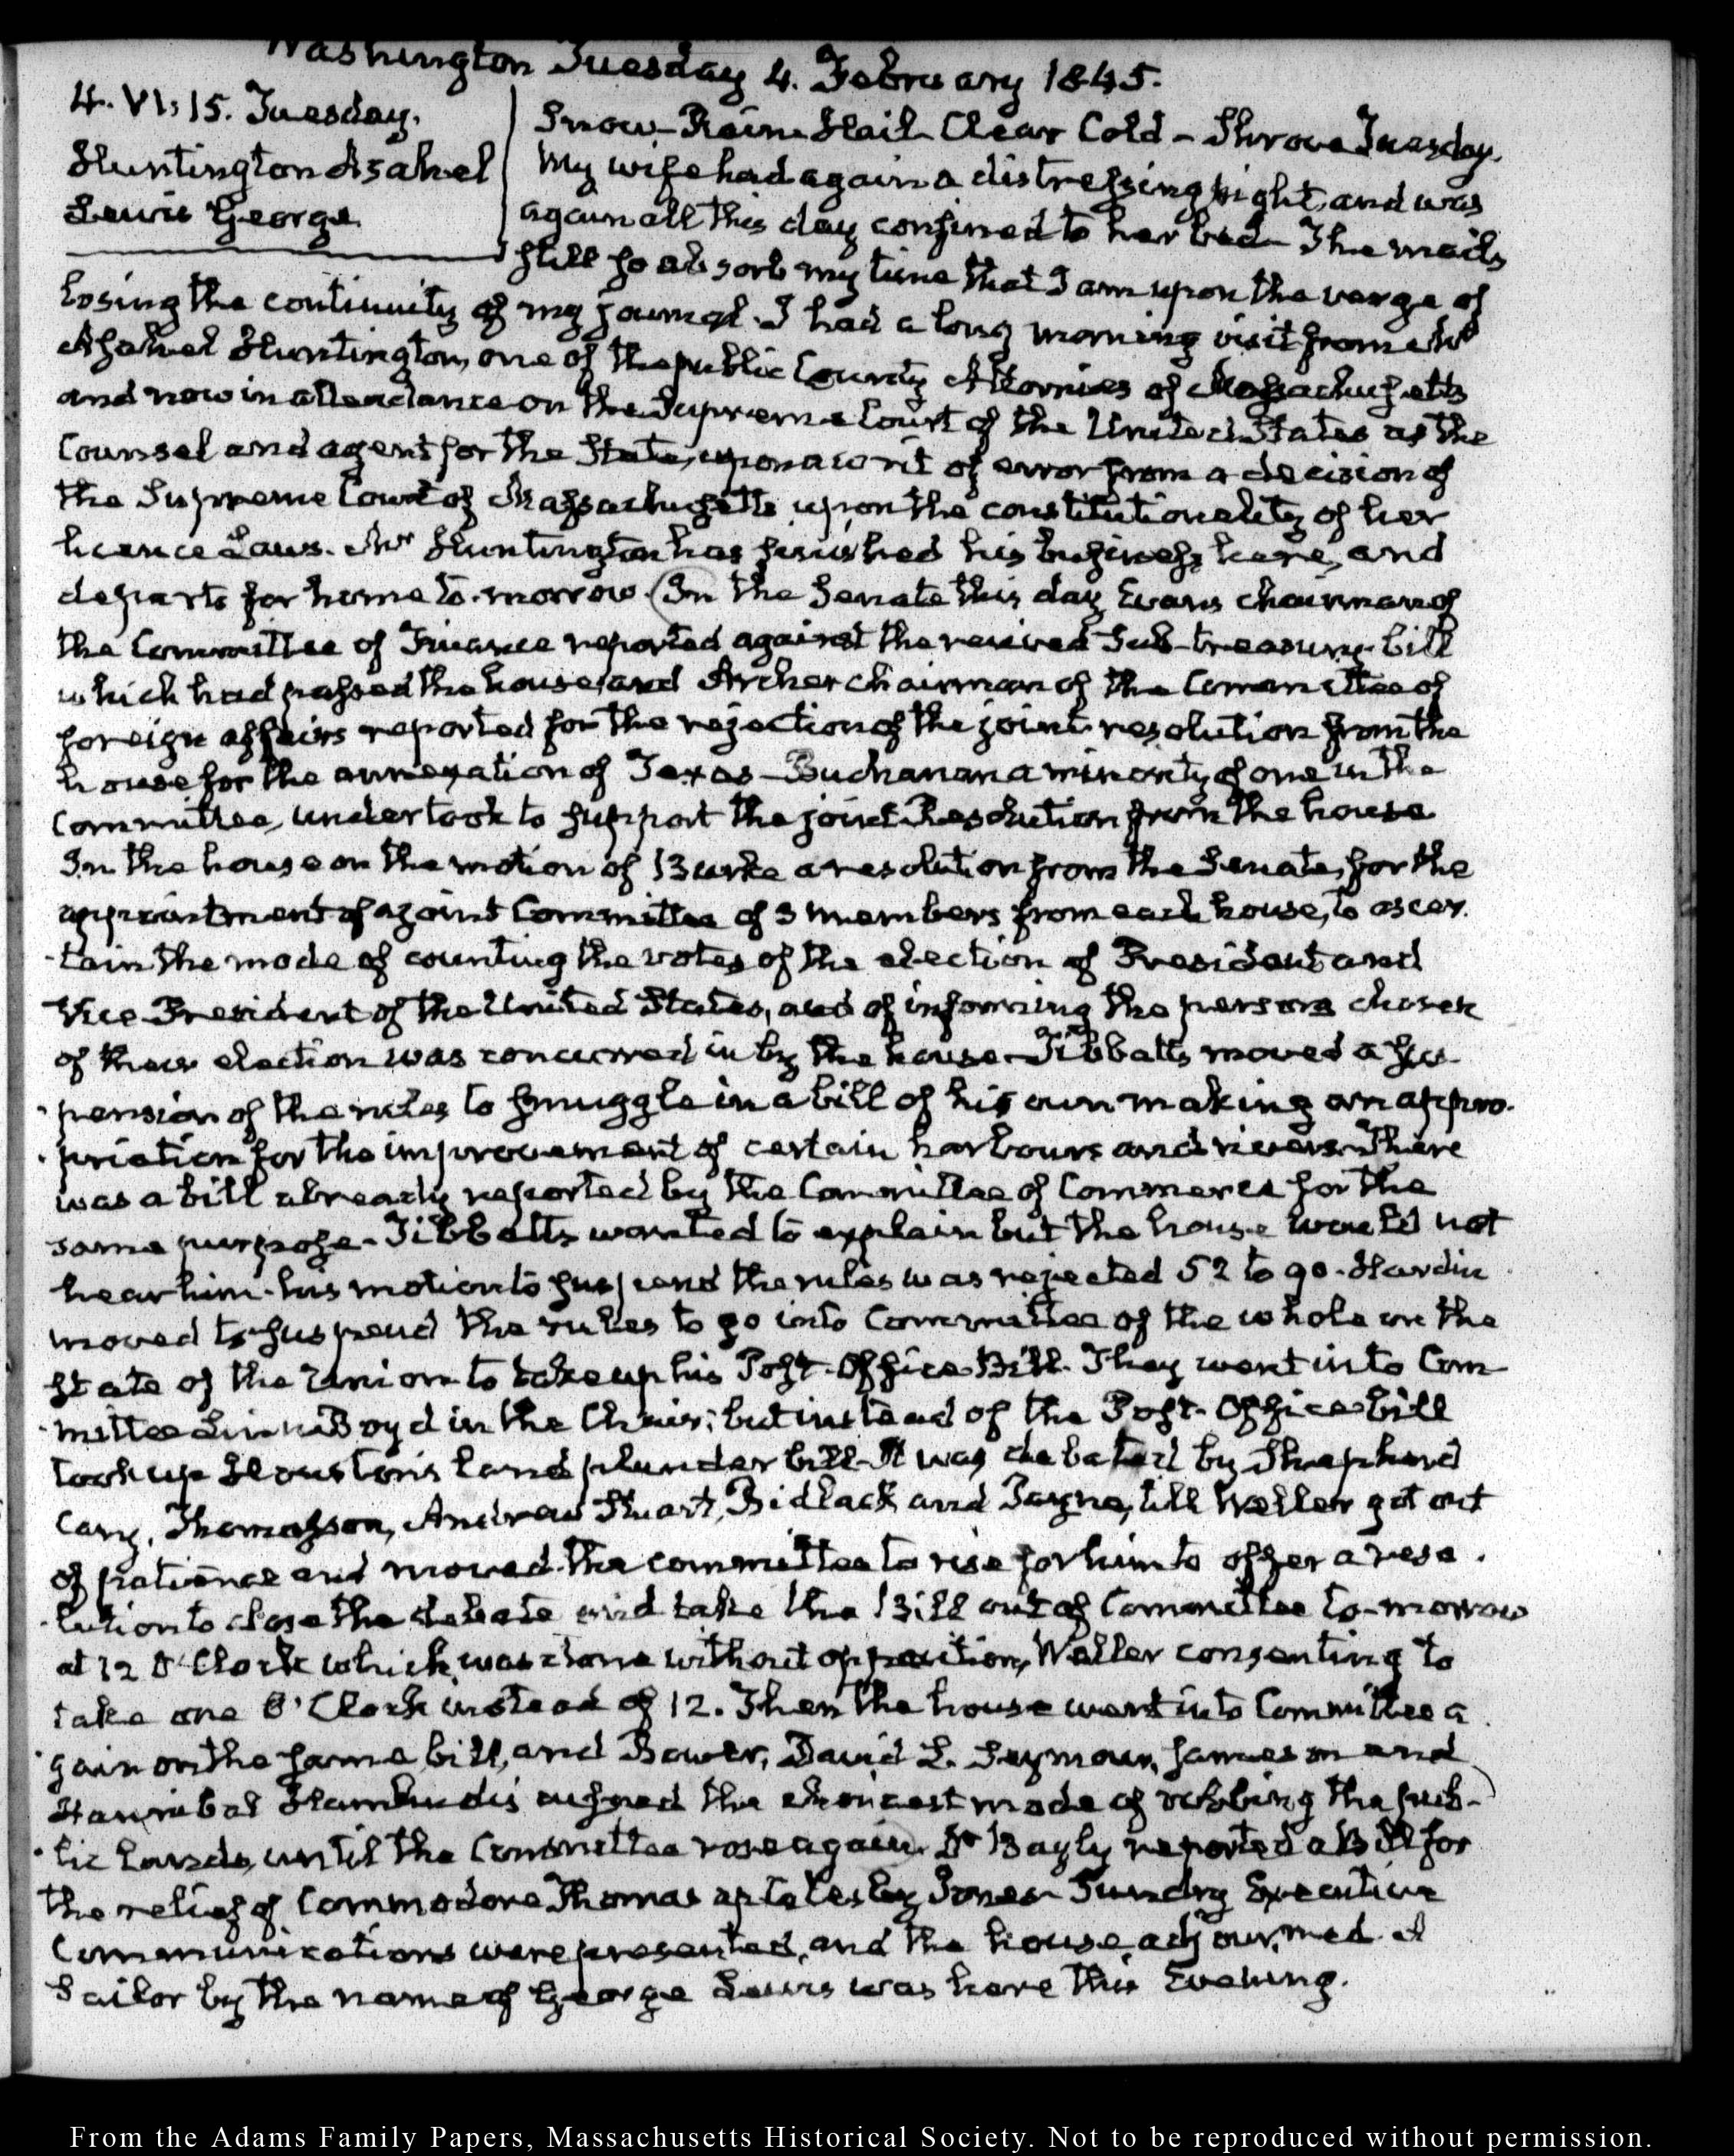 Washington Tuesday 4. February 1845.
4. VI:15. Tuesday.
Huntington Asahel
Lewis George
Snow- Rain- Hail- Clear Cold – Shrove Tuesday.
My wife had again a distressing night, and was
again all this day confined to her bed- The mails
still so absorb my time that I am upon the verge of
losing the continuity of my journal. I had a long morning visit from Mr
Asahel Huntington, one of the public County Attornies of Massachusetts
and now in attendance on the Supreme Court of the United States as the
Counsel and agent for the State, upon a writ of error from a decision of
the Supreme Court of Massachusetts upon the constitutionality of her
licence Laws. Mr Huntington has finished his business here, and
departs for home to-morrow. In the Senate this day Evans chairman of
the Committee of Finance reported against the revived Sub-treasury bill
which had passed the house, and Archer chairman of the Committee of
foreign affairs reported for the rejection of the joint resolution from the
house for the annexation of Texas – Buchanan a minority of one in the
Committee, undertook to support the joint Resolution from the house
In the house on the motion of Burke a resolution from the Senate, for the
appointment of a joint Committee of 3 members from each house, to ascer-
-tain the mode of counting the votes of the election of President and
Vice-President of the United States, and of informing the persons chosen
of their election was concurred in by the house- Tibbatts moved a sus-
-pension of the rules to smuggle in a bill of his own making an appro-
-priation for the improvement of certain harbours and rivers- There
was a bill already reported by the Committee of Commerce for the
same purpose- Tibbatts wanted to explain but the house would not
hear him- his motion to suspend the rules was rejected 52 to 90. Hardin
moved to suspend the rules to go into Committee of the whole on the
state of the Union to take up his Post-Office Bill. They went into Com-
-mittee Linn Boyd in the Chair; but instead of the Post-Office bill
took up Houston's land plunder bill- It was debated by Shepherd
Cary, Thomasson, Andrew Stuart, Bidlack and Payne, till Weller got out
of patience and moved the committee to rise for him to offer a reso-
-lution to close the debate and take the Bill out of Committee to-morrow
at 12 O'Clock which was done without opposition, Weller consenting to
take one O'Clock instead of 12. Then the house went into Committee a-
-gain on the same bill, and Bower, David L. Seymour, Jameson and
Hannibal Hamlin discussed the choicest mode of robbing the pub-
-lic lands, until the Committee rose again. Dr Bayly reported a Bill for
the relief of Commodore Thomas ap Catesby Jones- Sundry Executive
Communications were presented, and the house adjourned. A
Sailor by the name of George Lewis was here this Evening.
From the Adams Family Papers, Massachusetts Historical Society. Not to be reproduced without permission.